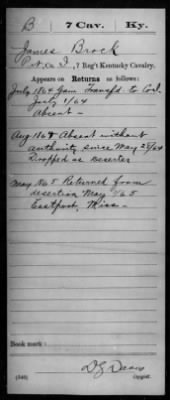 B | 7 Cav. | Ky.
James Brock
Pvt, Co. I, 7 Reg't Kentucky Cavalry.
Appears on Returns as follows:
July 1864 Gain Transf'd to Co I.
July 1/64
Absent -
Aug 1864 Absent without
authority since May 25/64
Dropped as Deserter
May 1865 Returned from
desertion May /65
Eastport, Miss -
Book mark:
(546)
Copyist.